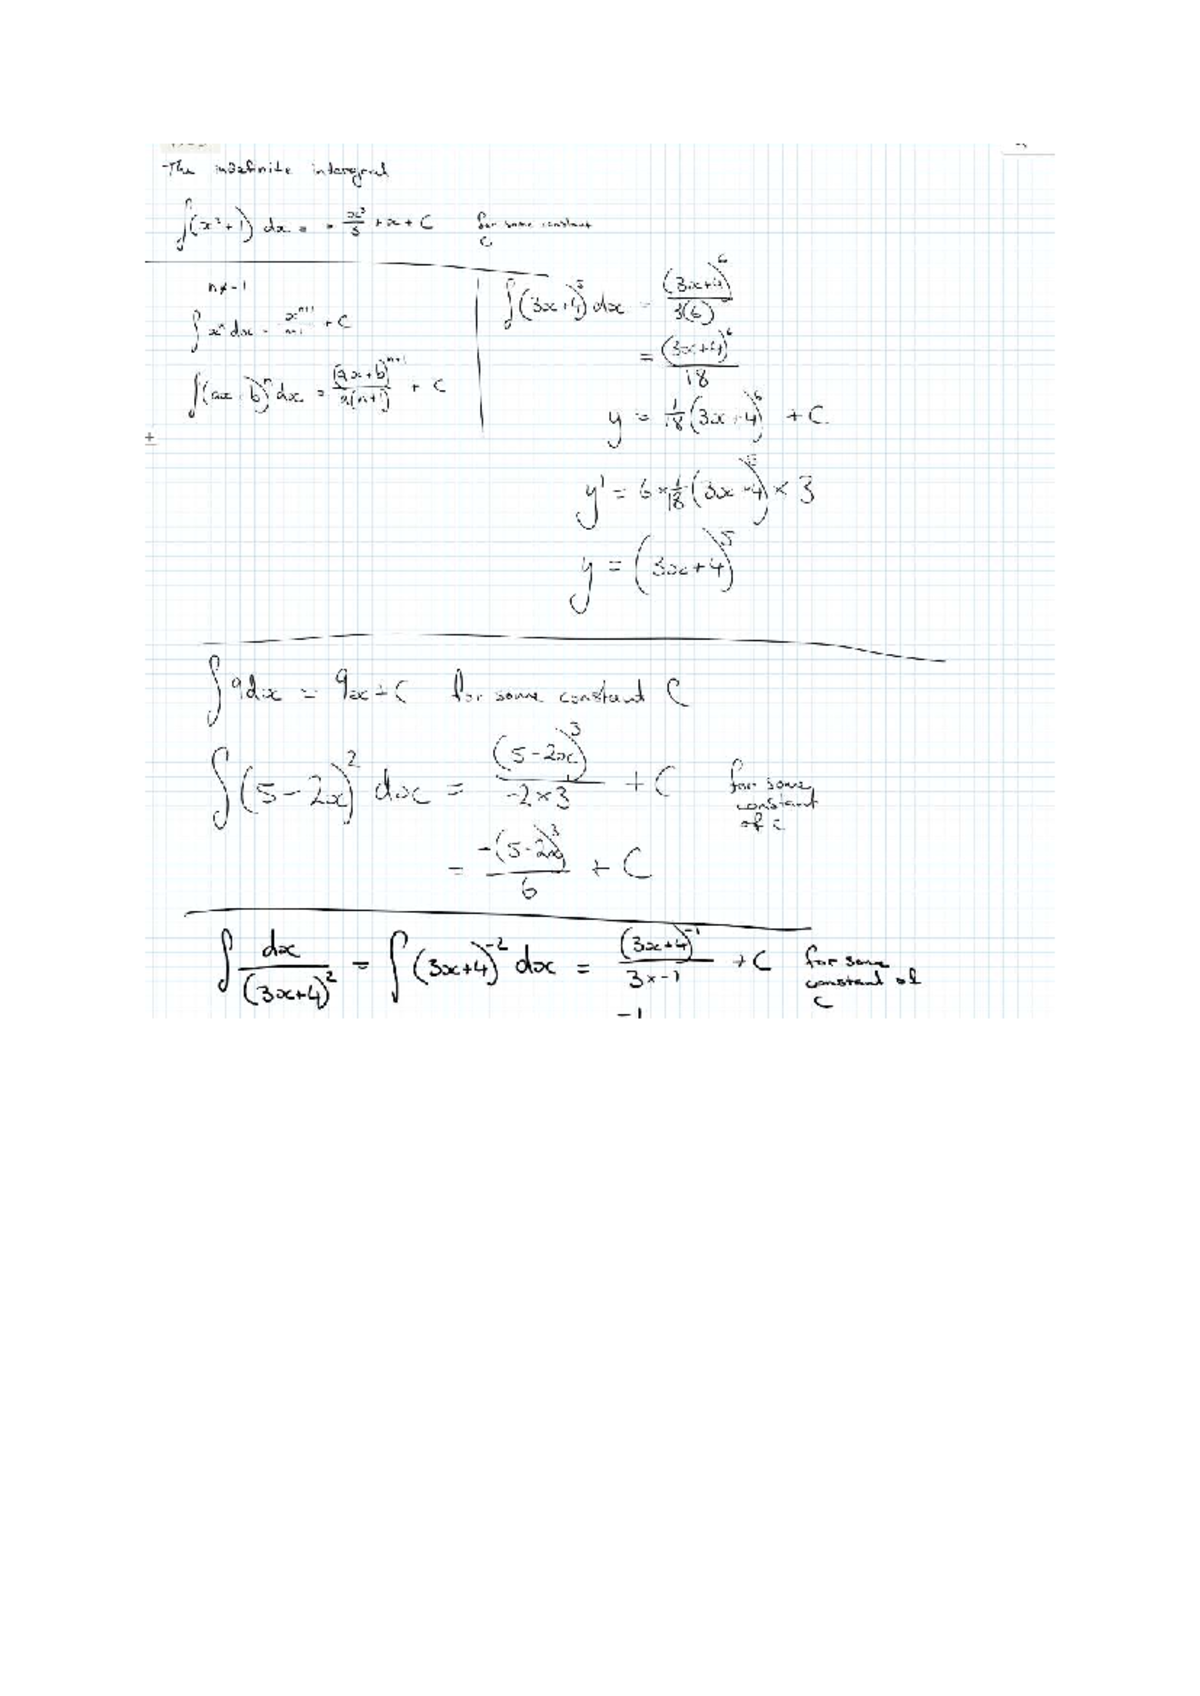 -The indefinite intergral
∫(x²+1) dx = = x³/3 + x + C for some constant C
n≠-1
∫xⁿ dx = xⁿ⁺¹/n+1 + C
∫(ax+b)ⁿ dx = (ax+b)ⁿ⁺¹/a(n+1) + C
∫(3x+4)⁵ dx = (3x+4)⁶/3(6)
= (3x+4)⁶/18
y = 1/18 (3x+4)⁶ + C.
y' = 6 × 1/18 (3x+4)⁵ × 3
y = (3x+4)⁵
∫9dx = 9x + C for some constant C
∫(5-2x)² dx = (5-2x)³/-2×3 + C for some constant of c
= -(5-2x)³/6 + C
∫dx/(3x+4)² = ∫(3x+4)⁻² dx = (3x+4)⁻¹/3×-1 + C for some constant of C
-1